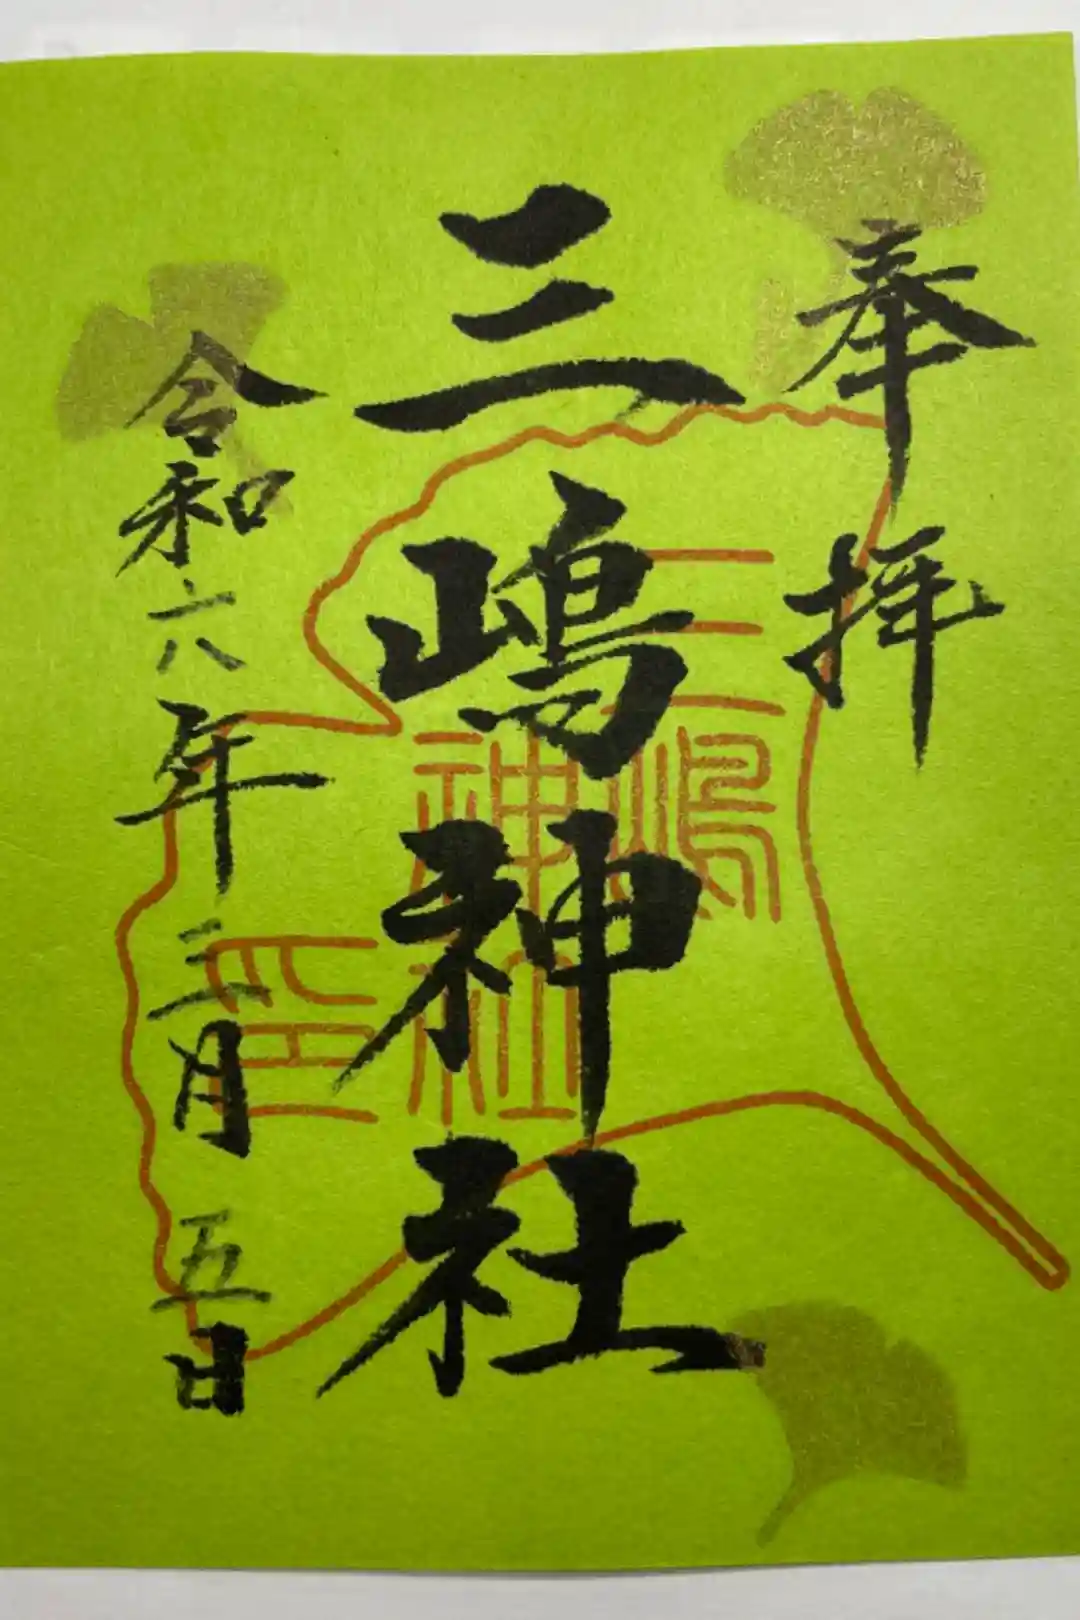 奉拝
三嶋神社
三嶋
神社
印
令和六年三月五日